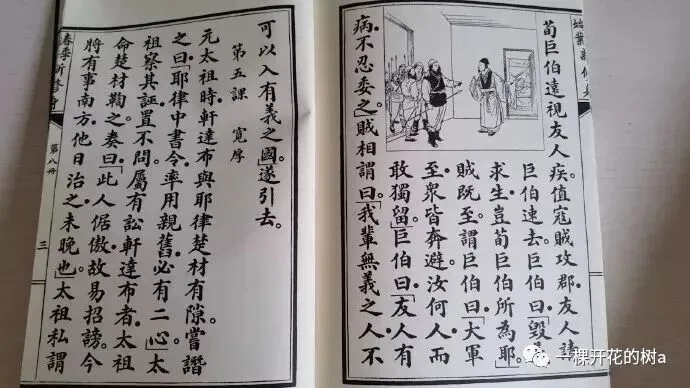 荀巨伯遠視友人疾。值寇賊攻郡。友人請
巨伯速去。巨伯曰。「毀
求生。豈荀巨伯所為耶。」
賊既至。謂巨伯曰。「大軍
至。眾皆奔避。汝何人。而
敢獨留。」巨伯曰。「友人有
病。不忍委之。」賊相謂曰。「我輩無義之人。不
可以入有義之國。」遂引去。
第五課 寬厚
元太祖時。軒達布與耶律楚材有隙。嘗譖
之曰。「耶律中書令。率用親舊。必有二心。」太
祖察其誣。置不問。屬有訟軒達布者。太祖
命楚材鞫之。奏曰。「此人倨傲。故易招謗。今
將有事南方。他日治之未晚也。」太祖私謂
第八冊
三
一棵开花的树a